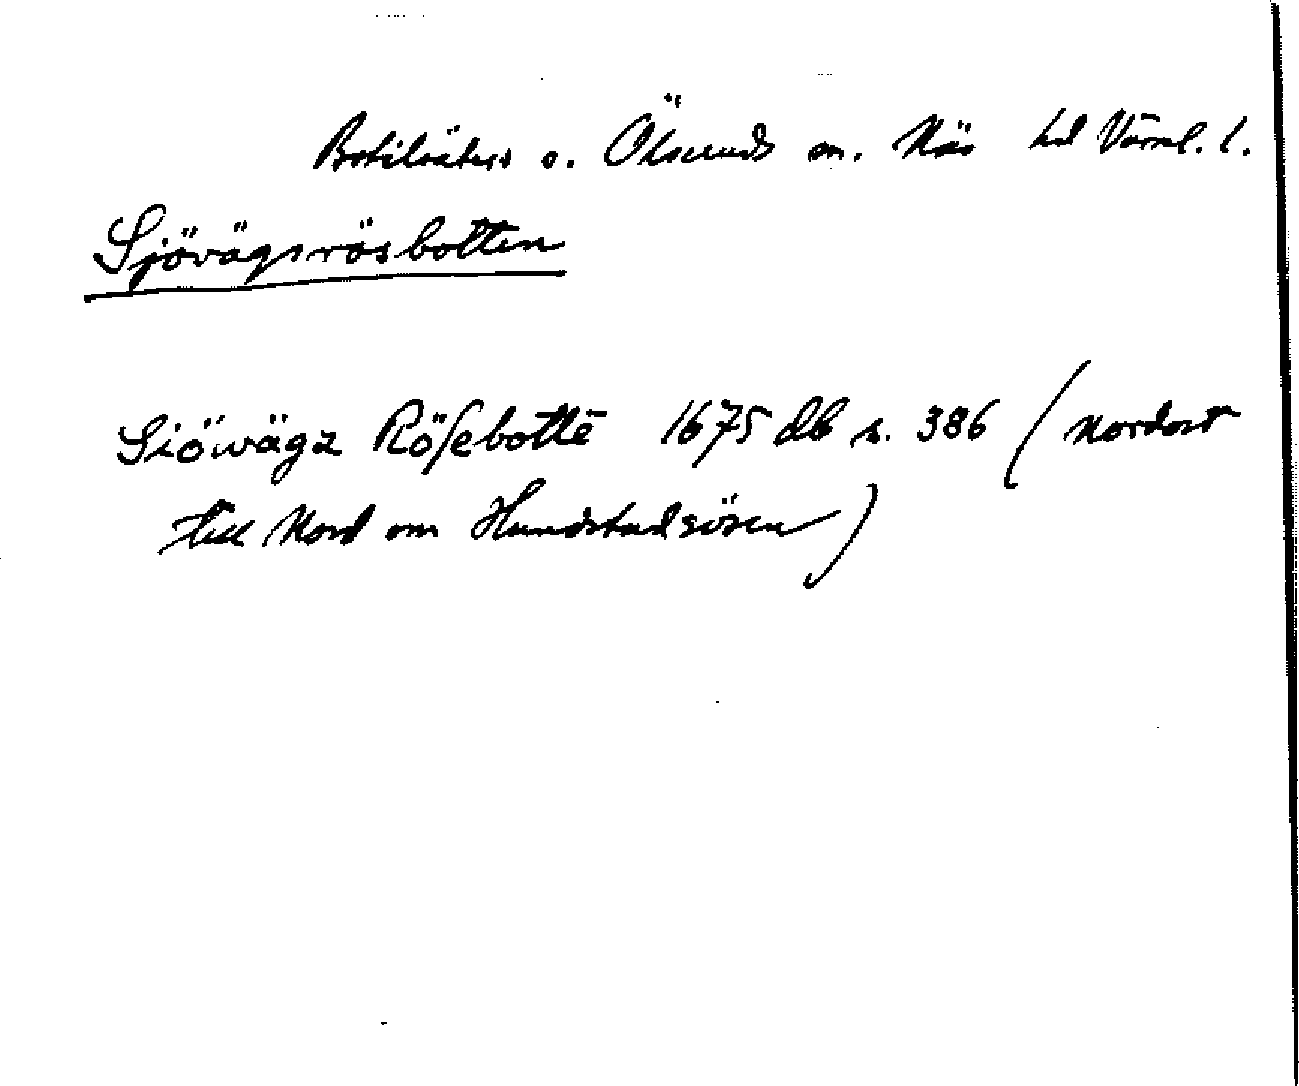 Botilsäters o. Ölseruds sn. Näs hd Värml. l.
Sjövägsrösbotten
Siöwäga Röſebottē 1675 db s. 386 (Nordost
till Nord om Hundstadsösen)